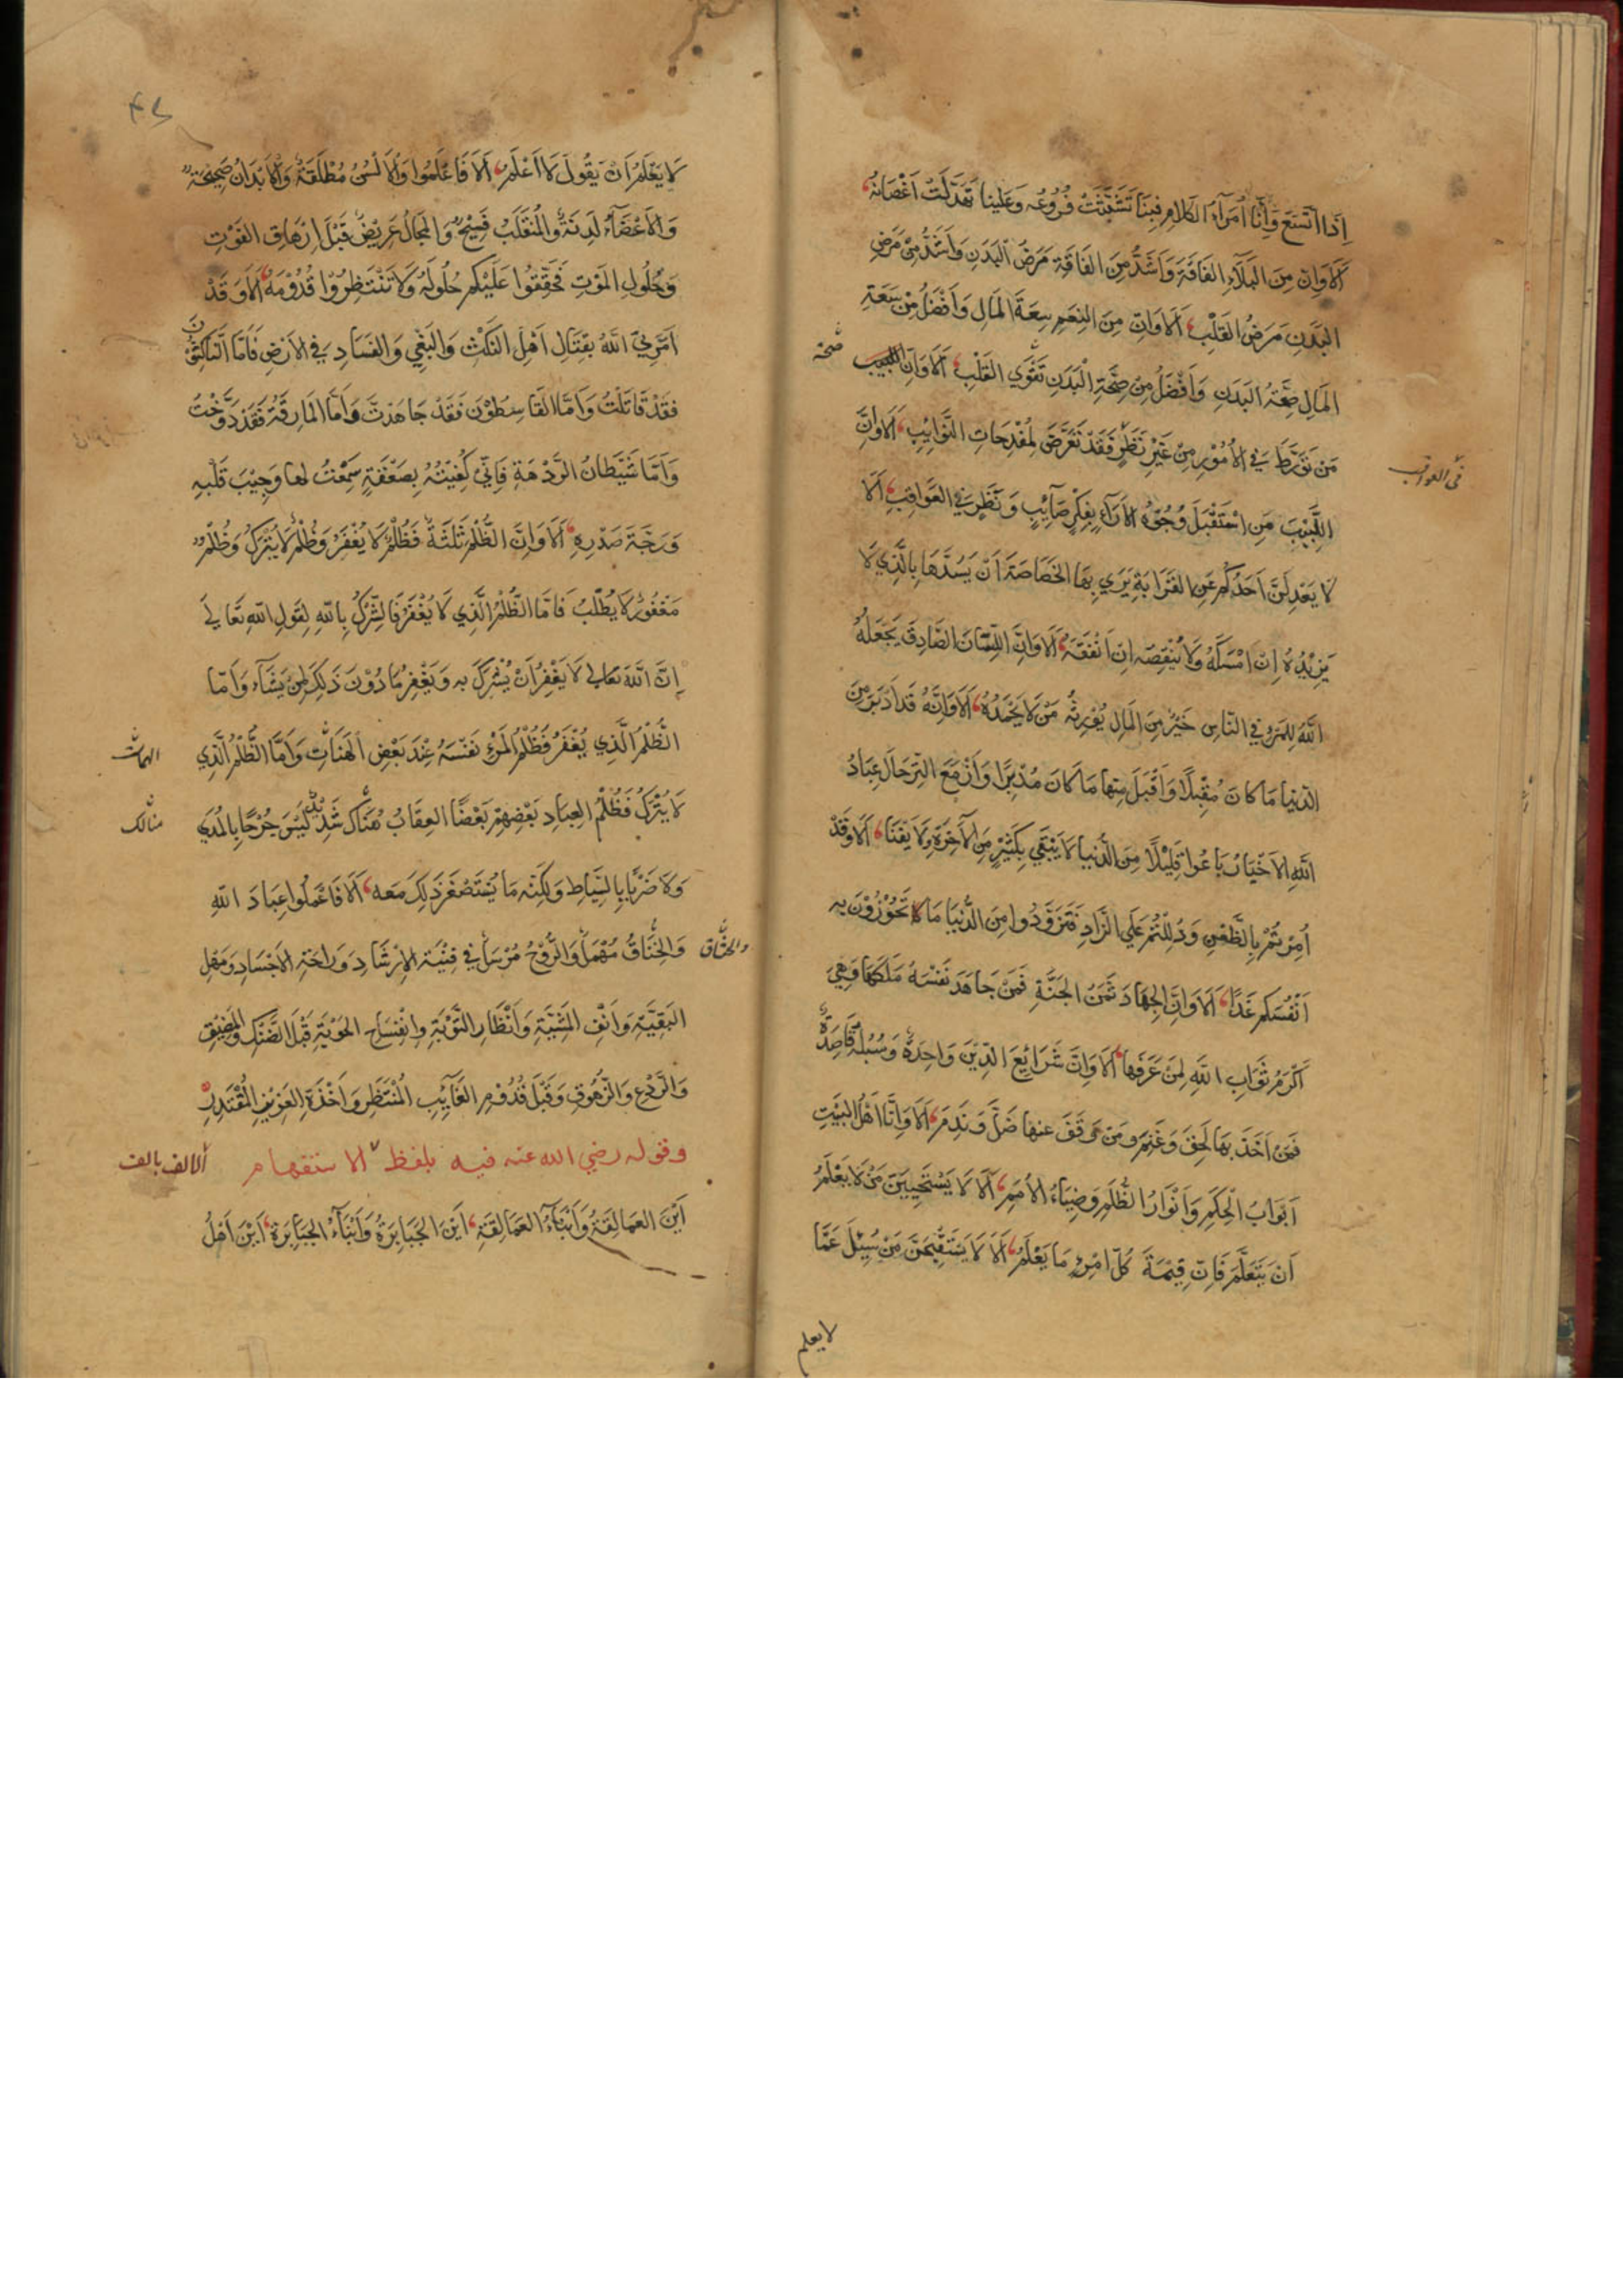 إِذَا اتَّسَعَ وَإِنَّا أُمَرَآءُ الكَلَامِ فِينَا تَشَبَّثَتْ فُرُوعُه وَعَلَينا تَهَدَّلَتْ أَغْصَانُهُ
أَلَا وَإِنَّ مِنَ البَلَآءِ الفَاقَةَ وَاَشَدُّ مِنَ الفَاقَةِ مَرَضُ البَدَنِ وَاَشَدُّ مِنْ مَرَضِ
البَدَنِ مَرَضُ القَلْبِ أَلَا وَاِنَّ مِنَ النِعَمِ سِعَةَ المَالِ وَاَفْضَلُ مِنْ سَعَةِ
المَالِ صِحَّةُ البَدَنِ وَاَفْضَلُ مِنْ صِحَّةِ الْبَدَنِ تَقْوَي القَلْبِ أَلَا وَاِنَّ اللبيب صحّة
مَنْ تَوَرَّطَ فِي الأُمُوْرِ مِنْ غَيْرِ نَظَرٍ فَقَدْ تَعَرَّضَ لِمُفْدِحَاتِ النَّوَايِبِ أَلَا وَاِنَّ
في العواقب
اللَّبِيْبَ مَنِ اسْتَقْبَلَ وُجُوْهَ الآرَاءِ بِفِكْرٍ صَآئِبٍ وَنَظَرٍ فِي العَوَاقِبِ أَلَا
لَا يَعْدِلَنَّ اَحَدُكُم عَنِ القَرَابَةِ يَرَي بِهَا الخَصَاصَةَ اَنْ يَسُدَّهَا بِالَّذِي لَا
يَزِيْدُهُ اِنْ اَمْسَكَهُ وَلَا يُنْقِصُه اِنْ اَنْفَقَهُ أَلَا وَاِنَّ اللِّسَانَ الصَّادِقَ يَجْعَلُهُ
اللّٰهُ لِلمَرْءِ فِي النَّاسِ خَيْرٌ مِنَ المَالِ يُوْرِثُهُ مَنْ لَا يَحْمَدُهُ أَلَا وَاِنَّهُ قَد اَدْبَرَ مِنَ
الدّنيا مَا كانَ مُقْبِلًا وَاَقْبَلَ مِنها مَا كَانَ مُدْبِرًا وَاَزْمَعَ التِرْحَالَ عِبَادُ
اللّٰهِ الاَخْيَارُ بَاعُوا قَلِيْلًا مِنَ الدُّنيا لَا يَبْقَي بِكَثِيْرٍ مِنَ الآخِرَةِ لَا يَفْنَا أَلَا وَقَدْ
أُمِرْتُمْ بِالظَّعْنِ وَدُلِلْتُمْ عَلَي الزَّادِ فَتَزَوَّدُوا مِنَ الدُّنْيَا مَا تَحُوْزُوْنَ بِه
اَنْفُسَكم غَدًا أَلَا وَاِنَّ الجِهَادَ ثَمَنُ الجَنَّةِ فَمَنْ جَاهَدَ نَفْسَهُ مَلَكَهَا وَهِيَ
اَكْرَمُ ثَوَابِ اللّٰهِ لِمَنْ عَرَفَهَا أَلَا وَاِنَّ شَرَائِعَ الدِّيْنِ وَاحِدَةٌ وَسُبُلَهُ قَاصِدَةٌ
فَمَنْ اَخَذَ بِهَا لَحِقَ وَغَنِمَ وَمَنْ وَقَفَ عنها ضَلَّ وَنَدِمَ أَلَا وَاِنَّا اَهْلُ البَيْتِ
اَبْوَابُ الْحِكَمِ وَاَنْوَارُ الظُّلَمِ وَضِيَاءُ الأُمَمِ أَلَا لَا يَسْتَحْيِيَنَّ مَنْ لَا يَعْلَمُ
اَنْ يَتَعَلَّمَ فَاِنَّ قِيْمَةَ كُلِّ امْرِءٍ مَا يَعْلَمُ أَلَا لَا يَسْتَقْبِحَنَّ مَنْ سُئِلَ عَمَّا
لا يعلم
لَا يَعْلَمُ اَنْ يَقُولَ لَا اَعْلَمُ أَلَا فَاعْلَمُوا وَالأَلْسُنُ مُطْلَقَةٌ وَالأَبْدَانُ صَحِيْحَةٌ
وَالأَعْضَآءُ لَدِنَةٌ وَالمُنْقَلَبُ فَسِيْحٌ وَالمَجَالُ عَرِيْضٌ قَبْلَ اِرْهَاقِ الفَوْتِ
وَحُلُولِ المَوْتِ فَحَقِّقُوا عَلَيْكم حُلُولَهُ وَلَا تَنْتَظِرُوْا قُدُوْمَهُ أَلَا وَقَدْ
اَمَرَنِيَ اللّٰهُ بِقِتَالِ اَهْلِ النَكْثِ وَالبَغْيِ وَالفَسَادِ فِي الأَرْضِ فَاَمَّا النَّاكِثُوْنَ
فَقَدْ قَاتَلْتُ وَاَمَّا القَاسِطُوْنَ فَقَدْ جَاهَدْتُ وَاَمَّا المَارِقَةُ فَقَدْ دَوَّخْتُ
وَاَمَّا شَيْطَانُ الرَّدْهَةِ فَاِنِّي كُفِيْتُهُ بِصَعْقَةٍ سَمِعْتُ لها وَجِيْبَ قَلْبِهِ
وَرَجَّةَ صَدْرِهِ أَلَا وَاِنَّ الظُّلْمَ ثَلٰثَةٌ فَظُلْمٌ لَا يُغْفَرُ وَظُلْمٌ لَا يُتْرَكُ وَظُلْمٌ
مَغْفُوْرٌ لَا يُطْلَبُ فَاَمَّا الظُّلْمُ الَّذِي لَا يُغْفَرُ فَالشِّرْكُ بِاللّٰهِ لِقَولِ اللّٰهِ تَعَالَي
إِنَّ اللّٰهَ تعالي لَا يَغْفِرُ اَنْ يُشْرَكَ بِه وَيَغْفِرُ مَا دُوْنَ ذَلِكَ لِمَنْ يَشَآءُ وَاَمَّا
الظُّلْمُ الَّذِي يُغْفَرُ فَظُلْمُ المَرْءِ نَفْسَهُ عِنْدَ بَعْضِ الهَنَاتِ وَاَمَّا الظُّلْمُ الَّذِي
لَا يُتْرَكُ فَظُلْمُ العِبَادِ بَعْضِهِمْ بَعْضًا العِقَابُ هُنَاكَ شَدِيْدٌ لَيْسَ جُرْحًا بِالمُدَي
هنالك
وَلَا ضَرْبًا بِالسِّيَاطِ وَلَكِنَّه مَا يُسْتَصْغَرُ ذَلِكَ مَعَه أَلَا فَاعْمَلُوا عِبَادَ اللّٰهِ
وَالخِنَاقُ مُهْمَلٌ وَالرُّوْحُ مُرْسَلٌ فِي فَيْنَةِ الاِرْشَادِ وَرَاحَةِ الاَجْسَادِ وَمَهَلِ
والخناق
البَقِيَّةِ وَاَنْفِ المَشِيَّةِ وَاِنْظَارِ التَّوْبَةِ وَانْفِسَاحِ الحَوْبَةِ قَبْلَ الضَّنْكِ وَالمَضِيْقِ
وَالرَّدْعِ وَالزُّهُوقِ وَقَبْلَ قُدُوْمِ الغَآئِبِ المُنْتَظَرِ وَاَخْذَةِ العَزِيْزِ المُقْتَدِرِ
وقوله رضي الله عنه فيه بلفظ الاستفهام
الالف بالف
اَيْنَ العَمَالِقَةُ وَاَبْنَاءُ العَمَالِقَةِ اَيْنَ الجَبَابِرَةُ وَاَبْنَآءُ الجَبَابِرَةِ اَيْنَ اَهْلُ